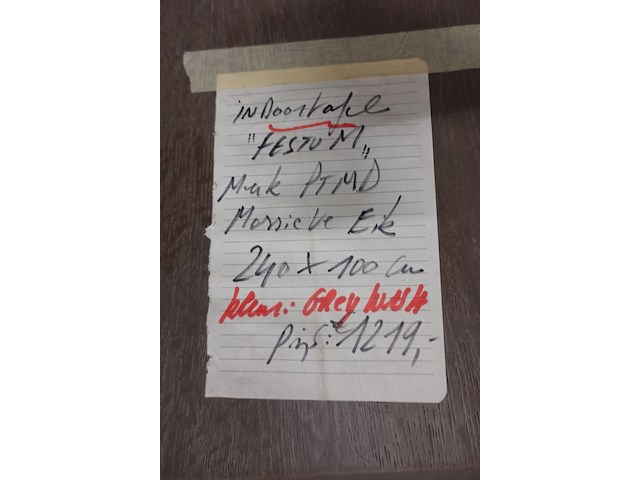 INDOORtafel
"FESTUM"
Merk PTMD
Massieve Eik
240 X 100 cm
kleur: GREY WASH
Prijs: € 1219,-